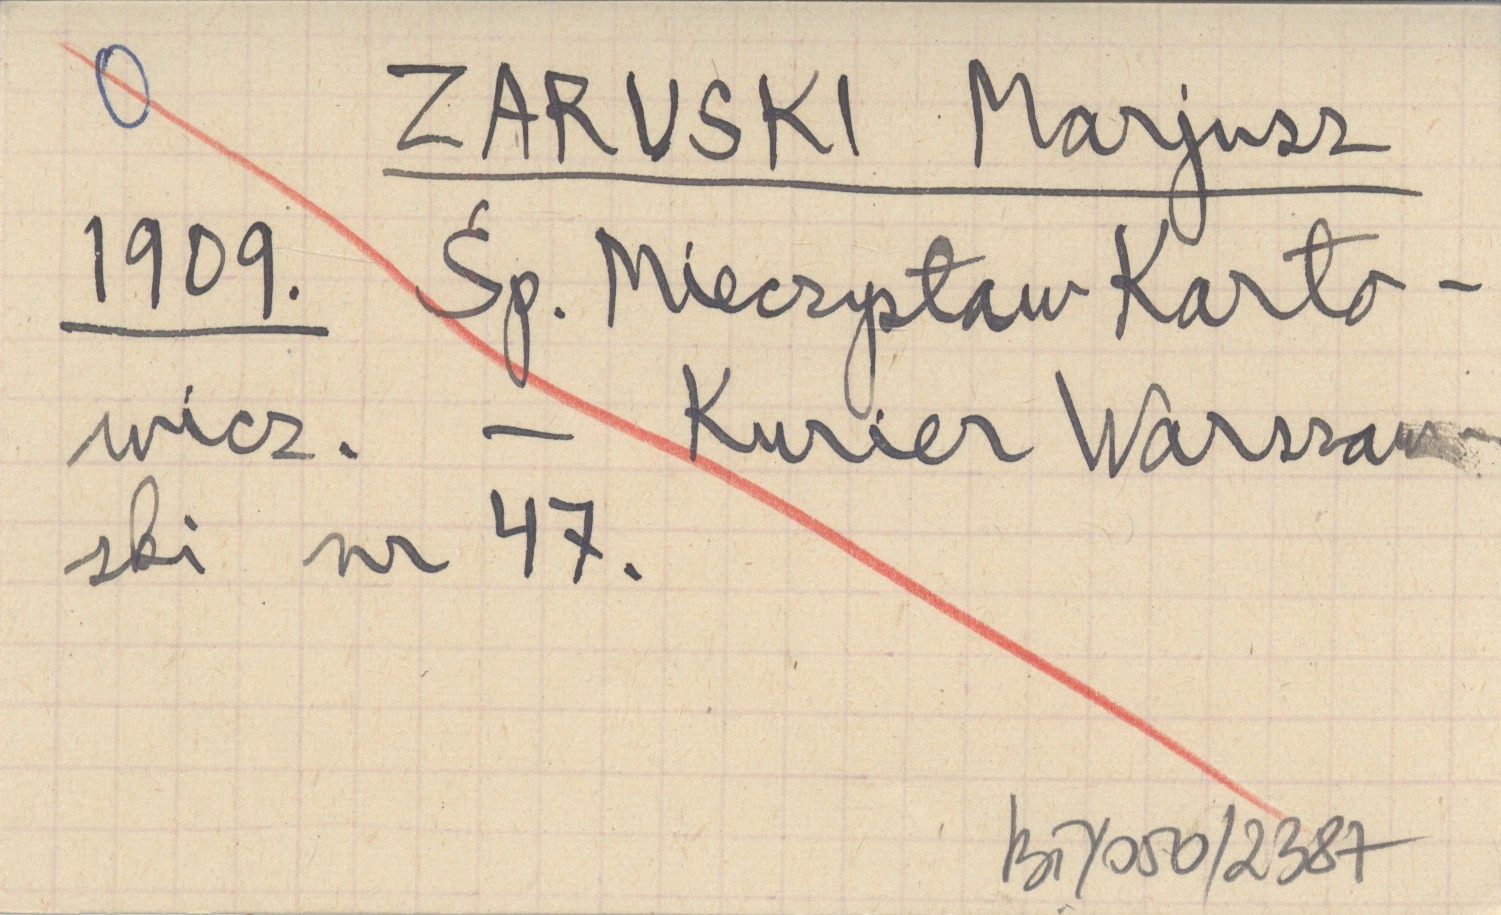 0 ZARUSKI Marjusz
1909. Śp. Mieczysław Karło-
wicz. — Kurier Warszaw-
ski nr 47.
BiY050/2387